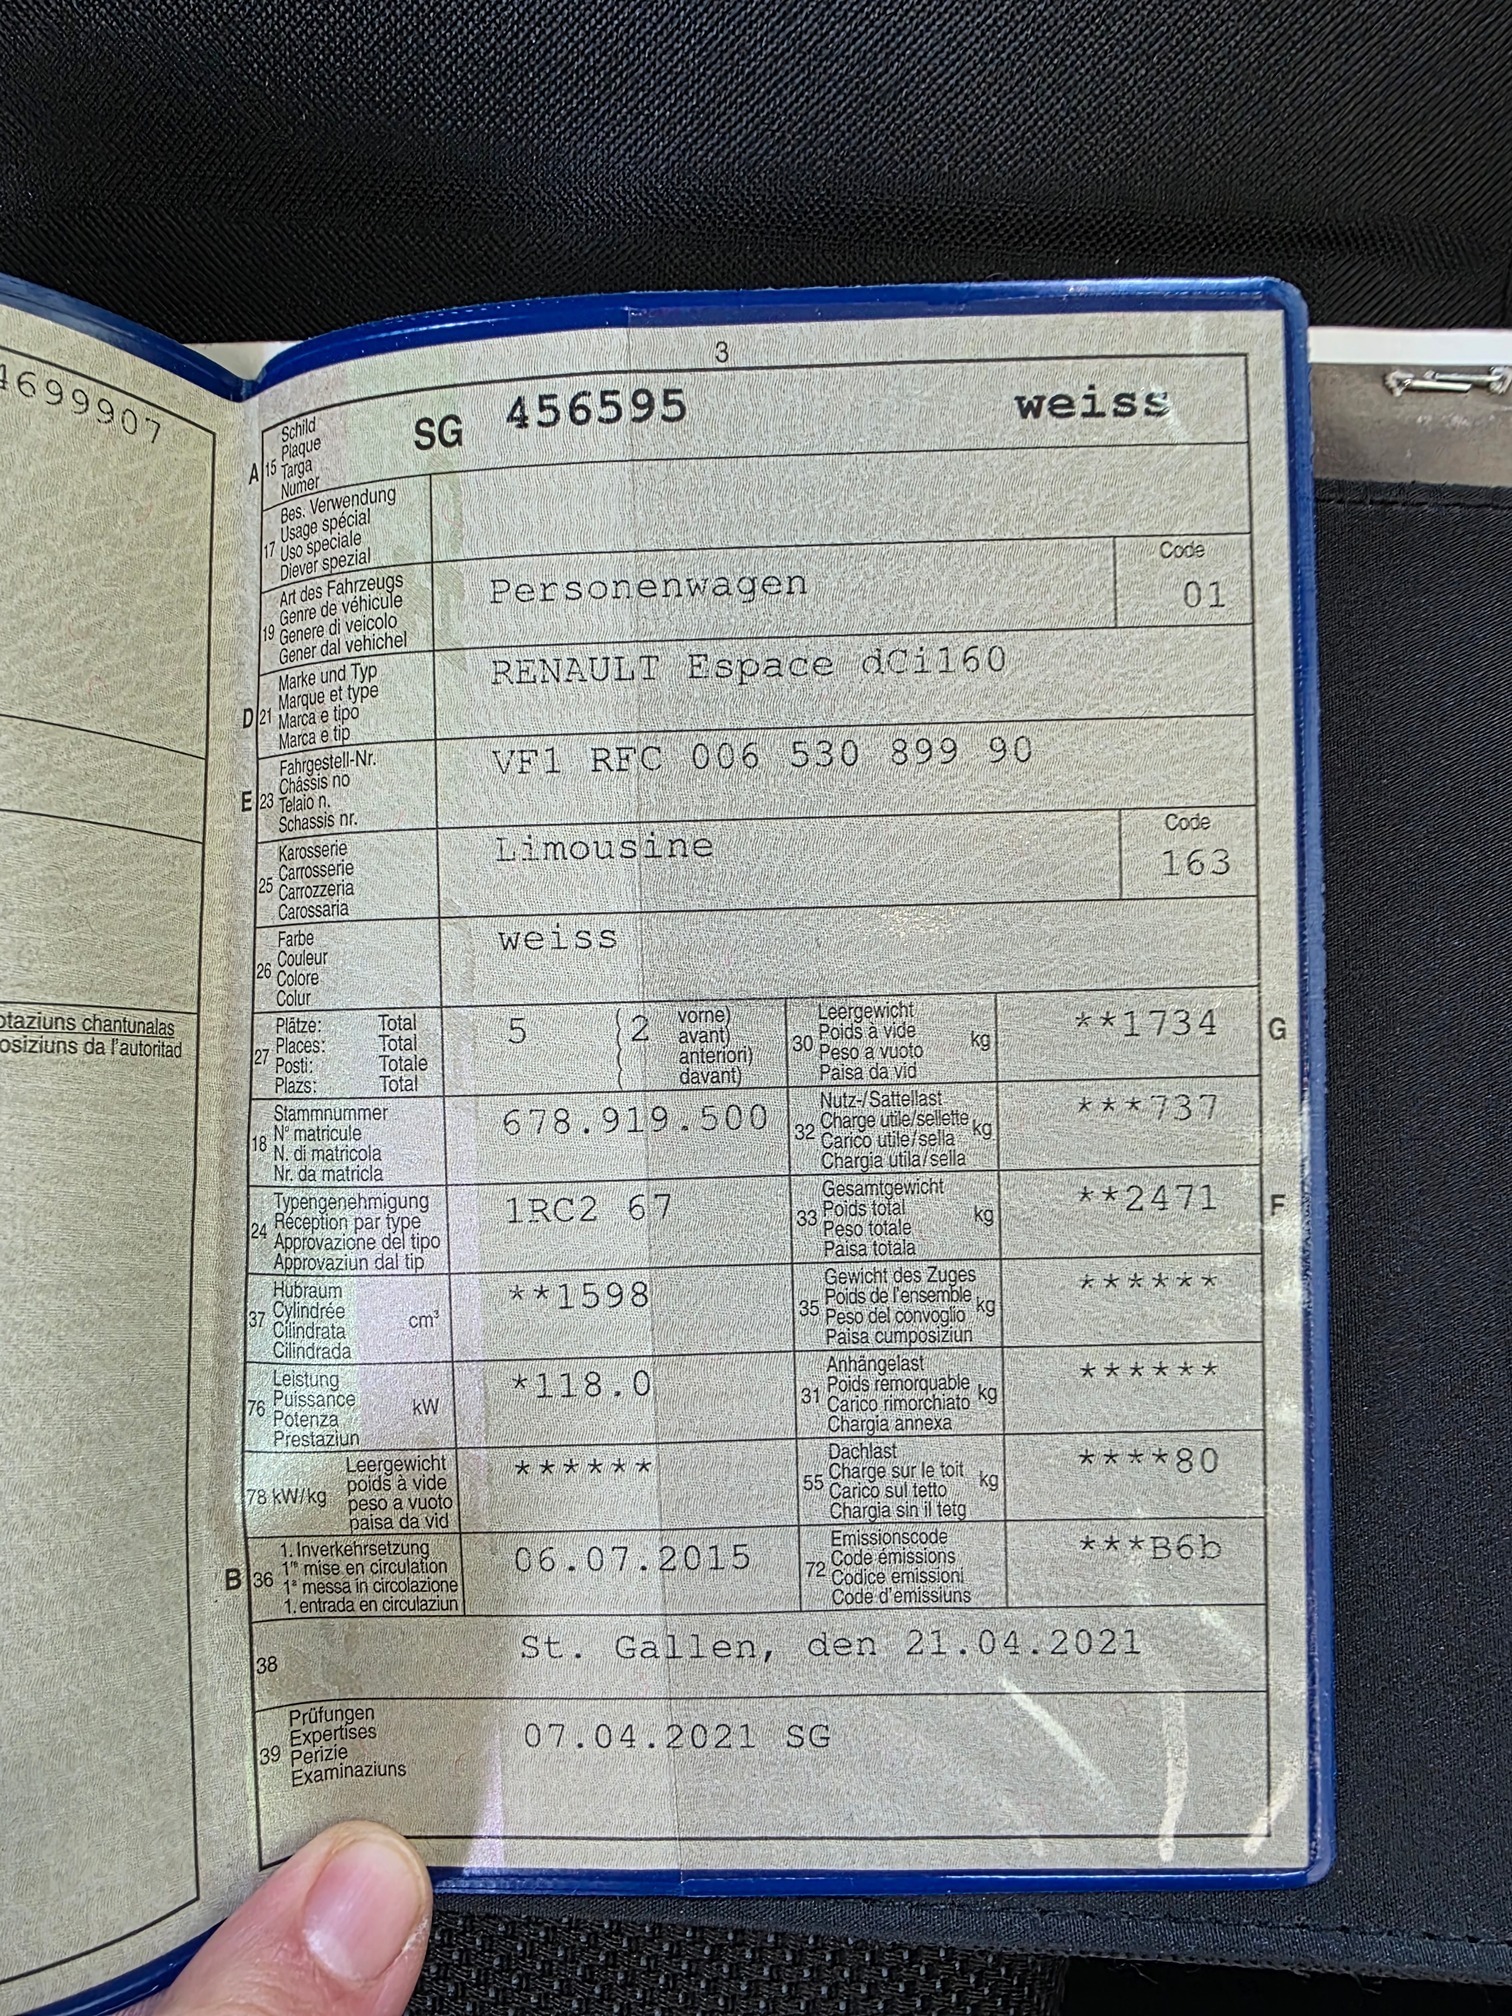 4699907
otaziuns chantunalas
osiziuns da l'autoritad
3
A 15 Schild
Plaque
Targa
Numer
SG 456595 weiss
17 Bes. Verwendung
Usage spécial
Uso speciale
Diever spezial
19 Art des Fahrzeugs
Genre de véhicule
Genere di veicolo
Gener dal vehichel
Personenwagen
Code
01
D 21 Marke und Typ
Marque et type
Marca e tipo
Marca e tip
RENAULT Espace dCi160
E 23 Fahrgestell-Nr.
Châssis no
Telaio n.
Schassis nr.
VF1 RFC 006 530 899 90
25 Karosserie
Carrosserie
Carrozzeria
Carossaria
Limousine
Code
163
26 Farbe
Couleur
Colore
Colur
weiss
27 Plätze: Total
Places: Total
Posti: Totale
Plazs: Total
5 (2 vorne)
( avant)
( anteriori)
( davant)
30 Leergewicht
Poids à vide kg
Peso a vuoto
Paisa da vid
**1734
G
18 Stammnummer
N° matricule
N. di matricola
Nr. da matricla
678.919.500
32 Nutz-/Sattellast
Charge utile/sellette kg
Carico utile/sella
Chargia utila/sella
***737
24 Typengenehmigung
Réception par type
Approvazione del tipo
Approvaziun dal tip
1RC2 67
33 Gesamtgewicht
Poids total kg
Peso totale
Paisa totala
**2471
F
37 Hubraum
Cylindrée cm³
Cilindrata
Cilindrada
**1598
35 Gewicht des Zuges
Poids de l'ensemble kg
Peso del convoglio
Paisa cumposiziun
******
76 Leistung
Puissance kW
Potenza
Prestaziun
*118.0
31 Anhängelast
Poids remorquable kg
Carico rimorchiato
Chargia annexa
******
78 kW/kg Leergewicht
poids à vide
peso a vuoto
paisa da vid
******
55 Dachlast
Charge sur le toit kg
Carico sul tetto
Chargia sin il tetg
****80
B 36 1. Inverkehrsetzung
1re mise en circulation
1a messa in circolazione
1. entrada en circulaziun
06.07.2015
72 Emissionscode
Code émissions
Codice emissioni
Code d'emissiuns
***B6b
38
St. Gallen, den 21.04.2021
39 Prüfungen
Expertises
Perizie
Examinaziuns
07.04.2021 SG